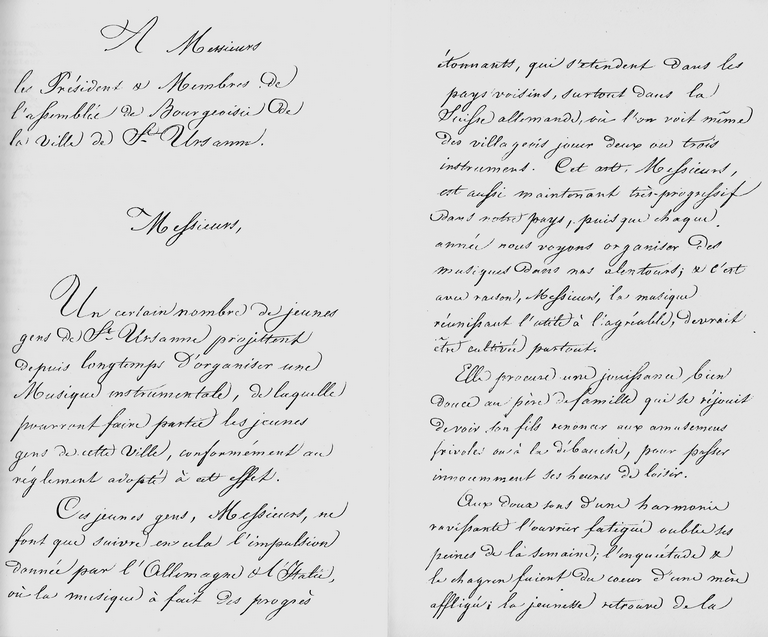 A Messieurs
le Président & Membres de
l'assemblée de Bourgeoisie de
la Ville de St. Ursanne.
Messieurs,
Un certain nombre de jeunes
gens de St. Ursanne projettent
depuis longtemps d'organiser une
Musique instrumentale, de laquelle
pourront faire partie les jeunes
gens de cette Ville, conformément au
règlement adopté à cet effet.
Ces jeunes gens, Messieurs, ne
font que suivre en cela l'impulsion
donnée par l'Allemagne & l'Italie,
où la musique à fait des progrès
étonnants, qui s'étendent dans les
pays voisins, surtout dans la
Suisse allemande, où l'on voit même
des villageois jouer deux ou trois
instruments. Cet art, Messieurs,
est aussi maintenant très-progressif
dans notre pays, puisque chaque
année nous voyons organiser des
musiques dans nos alentours; & c'est
avec raison, Messieurs, la musique
réunissant l'utile à l'agréable, devrait
être cultivée partout.
Elle procure une jouissance bien
douce au père de famille qui se réjouit
de voir son fils renoncer aux amusemens
frivoles ou à la débauche, pour passer
innocemment ses heures de loisir.
Aux doux sons d'une harmonie
ravissante l'ouvrier fatigué oublie ses
peines de la semaine; l'inquiétude &
le chagrin fuient du cœur d'une mère
affligée; la jeunesse retrouve de la